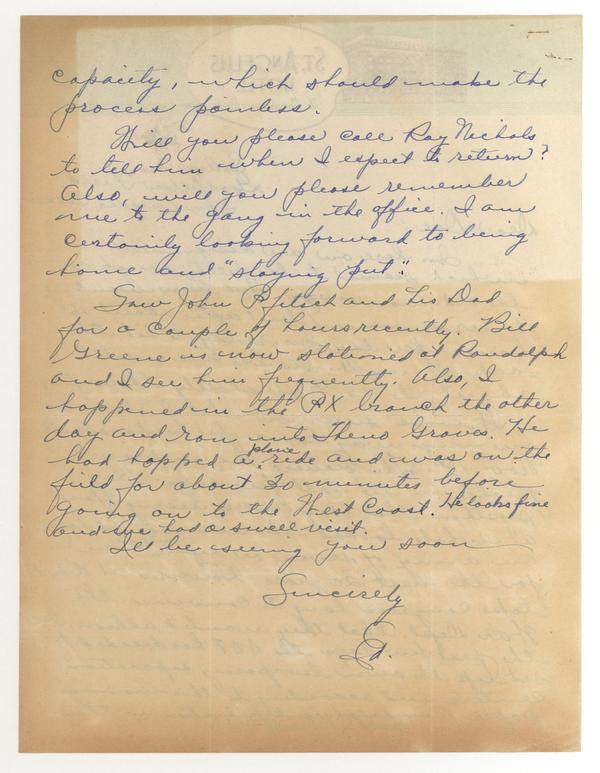 capacity, which should make the
process painless.
Will you please call Ray Nichols
to tell him when I expect to return?
Also, will you please remember
me to the gang in the office. I am
certainly looking forward to being
home and "staying put".
Saw John Pfitsch and his Dad
for a couple of hours recently. Bill
Greene is now stationed at Randolph
and I see him frequently. Also, I
happened in the PX branch the other
day and ran into Theno Graves. He
had hopped a plane ride and was on the
field for about 30 minutes before
going on to the West Coast. He looks fine
and we had a swell visit.
I'll be seeing you soon
Sincerely
Ed.